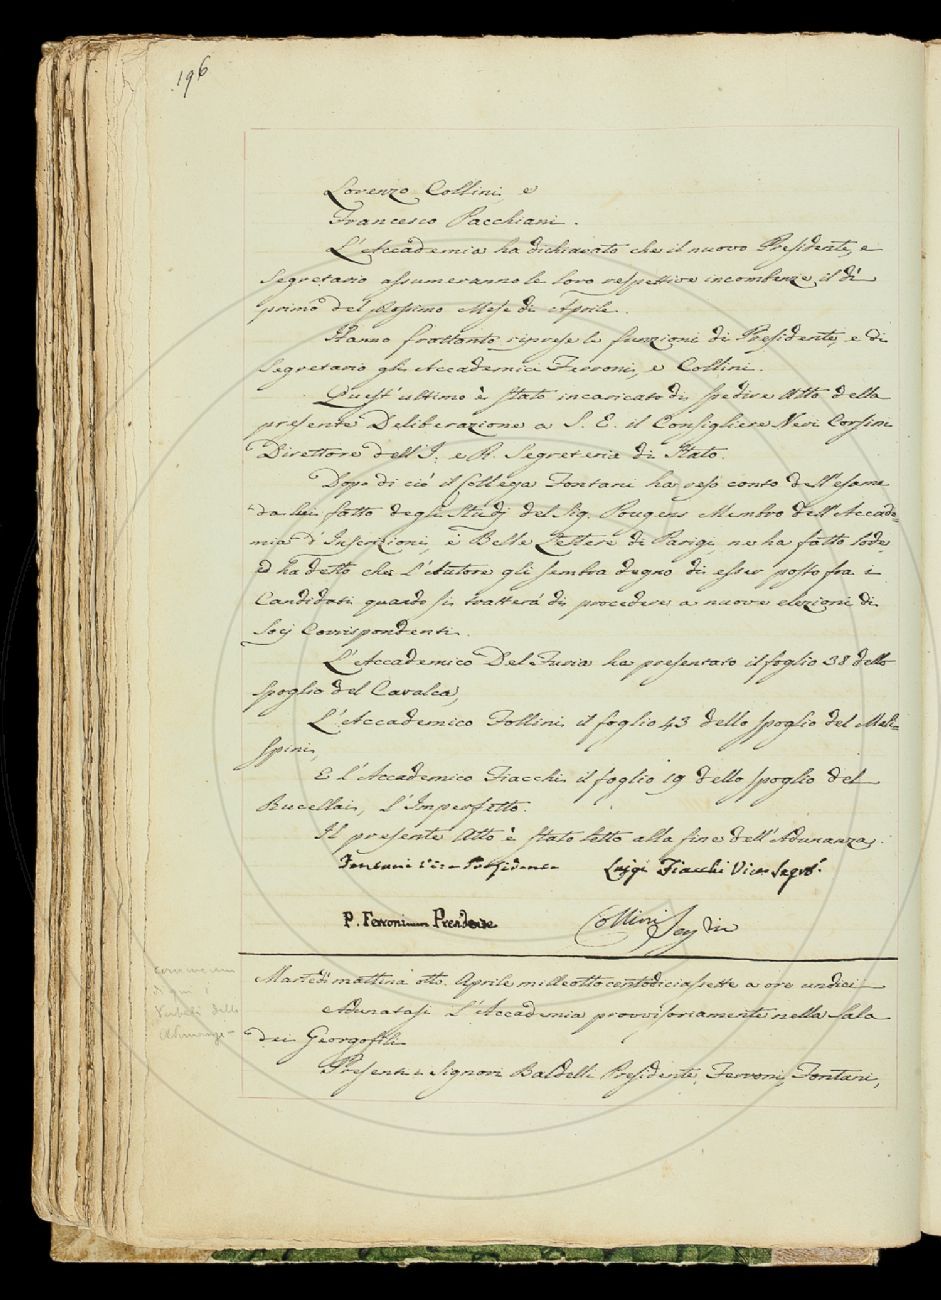 196
Lorenzo Collini, e
Francesco Pacchiani.
L'Accademia ha dichiarato che il nuovo Presidente, e
Segretario assumeranno le loro respettive incombenze il dì
primo del prossimo Mese di Aprile.
Hanno frattanto riprese le funzioni di Presidente, e di
Segretario gli Accademici Ferroni, e Collini.
Quest'ultimo è stato incaricato di spedire Atto della
presente Deliberazione a S. E. il Consigliere Neri Corsini
Direttore dell'I. e R. Segreteria di Stato.
Dopo di ciò il Collega Fontani ha reso conto dell'esame
da lui fatto degli Studj del Sig. Pougens Membro dell'Accade=
mia d'Inscrizioni, e Belle Lettere di Parigi, ne ha fatto lode,
ed ha detto che l'Autore gli sembra degno di esser posto fra i
Candidati quando si tratterà di procedere a nuove elezioni di
Socj Corrispondenti.
L'Accademico Del Furia ha presentato il foglio 38 dello
spoglio del Cavalca,
L'Accademico Follini il foglio 43 dello spoglio del Male=
spini,
E l'Accademico Fiacchi il foglio 19 dello spoglio del
Rucellai, l'Imperfetto.
Il presente Atto è stato letto alla fine dell'Adunanza.
Fontani Vice Presidente Luigi Fiacchi Vice Segret.
P. Ferroni Presidente Collini Seg
Martedì mattina otto Aprile milleottocentodiciassette a ore undici
Adunatasi l'Accademia provvisoriamente nella Sala
dei Georgofili
Presenti i Signori Baldelli Presidente, Ferroni, Fontani,
qui i
Verbali delle
Adunanze